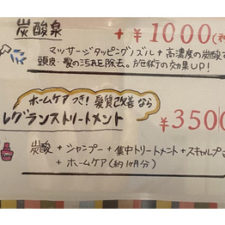 炭酸泉 + 1000(税
マッサージタッピングノズル + 高濃度の炭酸
頭皮・髪の汚れを除去。が施術の効果UP!
ホームケアつき! 髪質改善なら
レグランストリートメント ¥3500
炭酸 + シャンプー + 集中トリートメント + スキャルプ
+ ホームケア(約1ヶ月分)